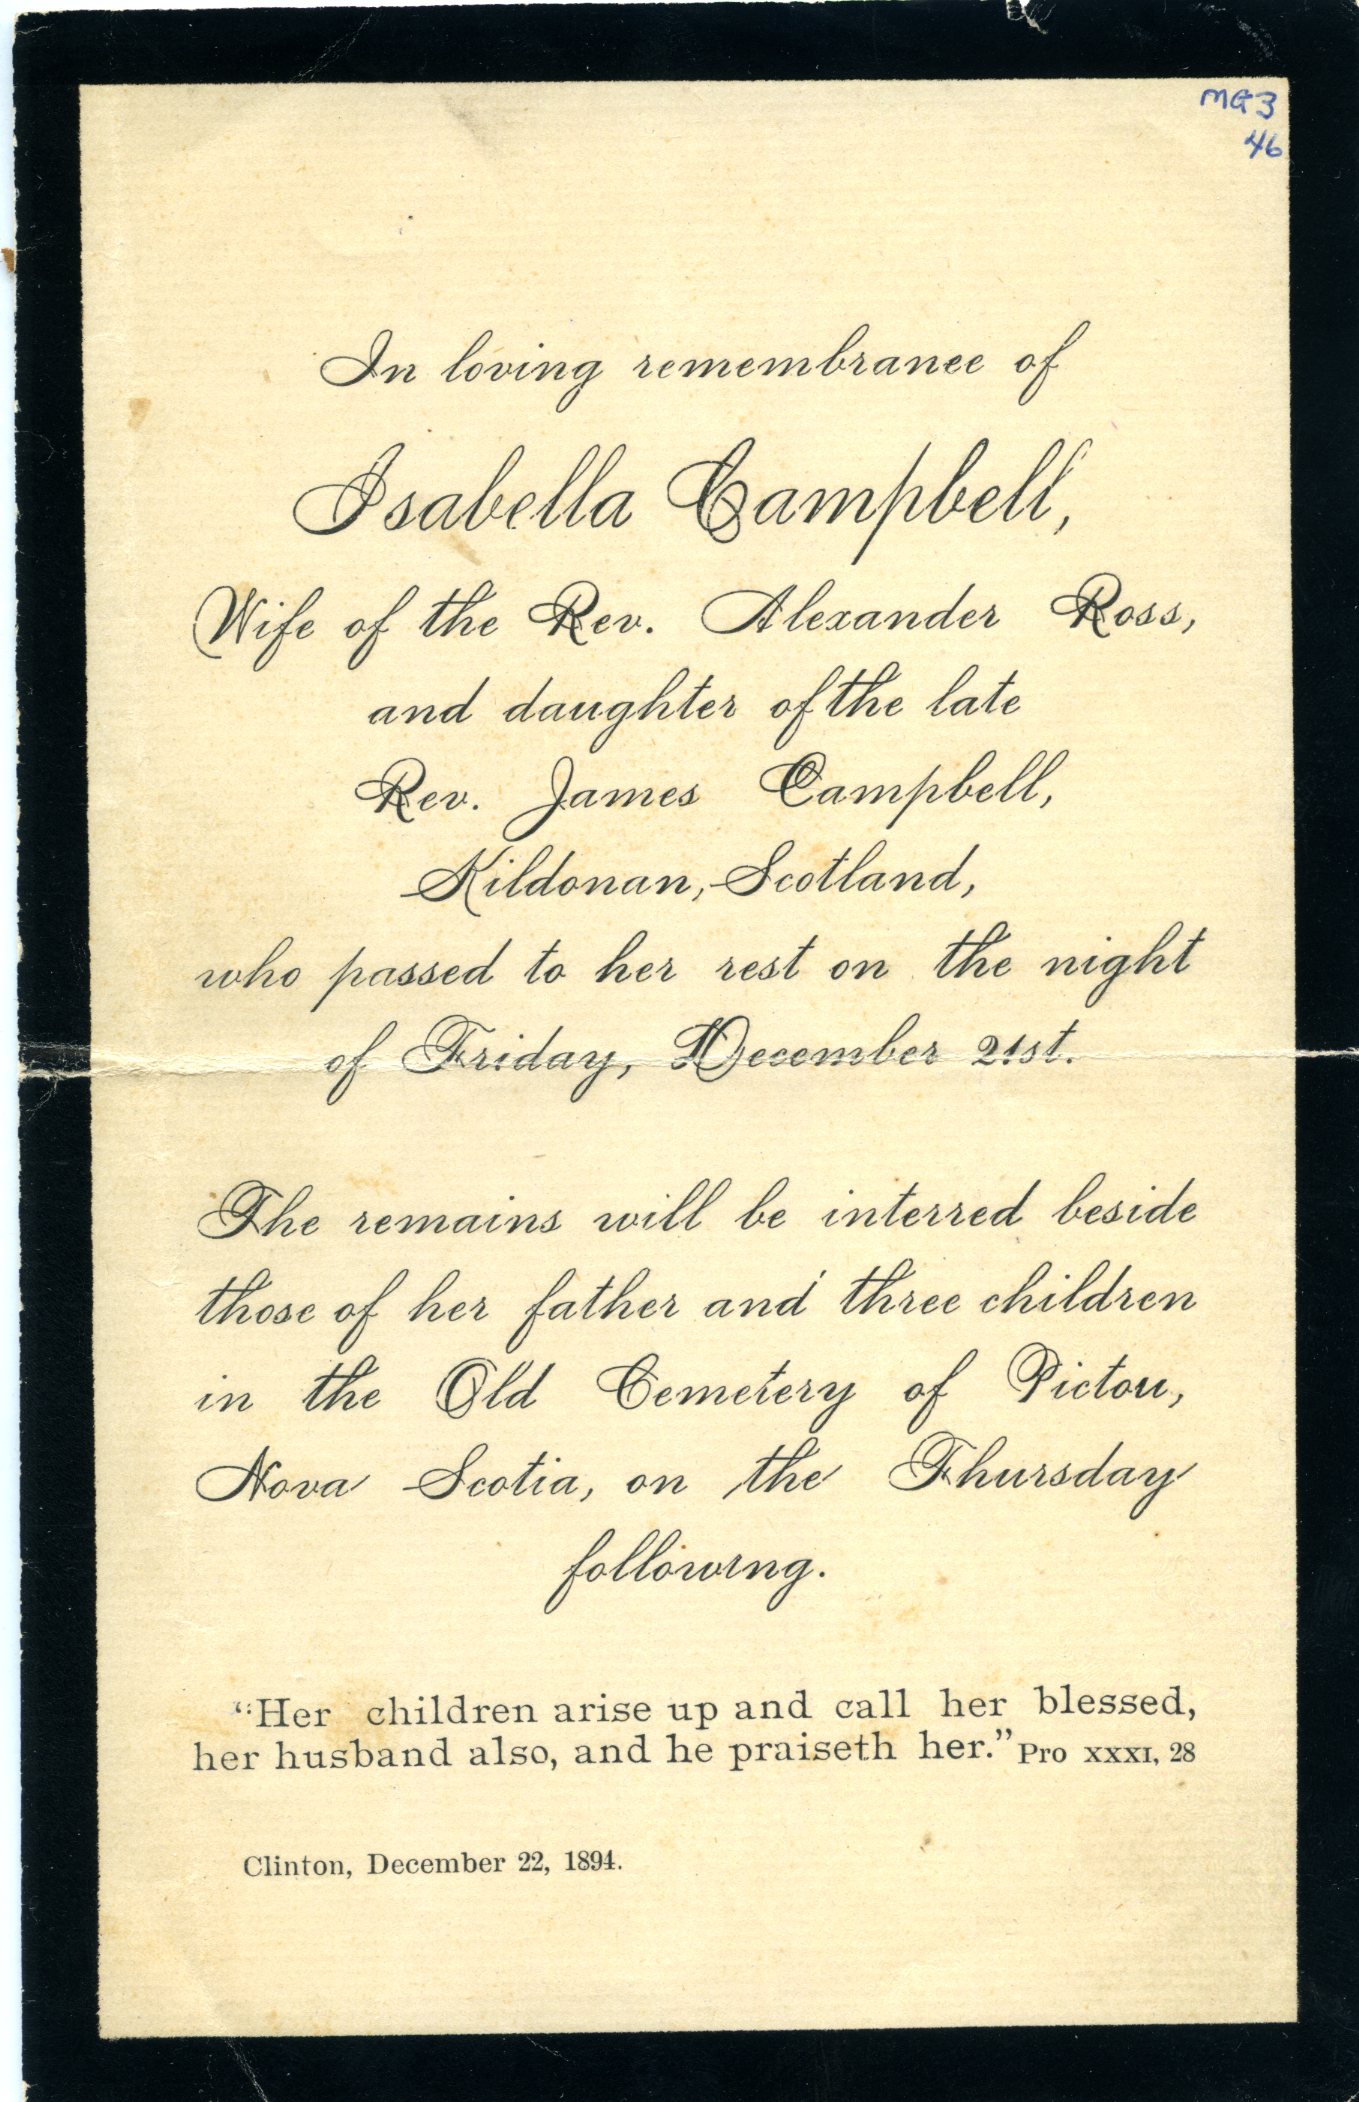 MG3
46
In loving remembrance of
Isabella Campbell,
Wife of the Rev. Alexander Ross,
and daughter of the late
Rev. James Campbell,
Kildonan, Scotland,
who passed to her rest on the night
of Friday, December 21st.
The remains will be interred beside
those of her father and three children
in the Old Cemetery of Pictou,
Nova Scotia, on the Thursday
following.
"Her children arise up and call her blessed,
her husband also, and he praiseth her." Pro XXXI, 28
Clinton, December 22, 1894.